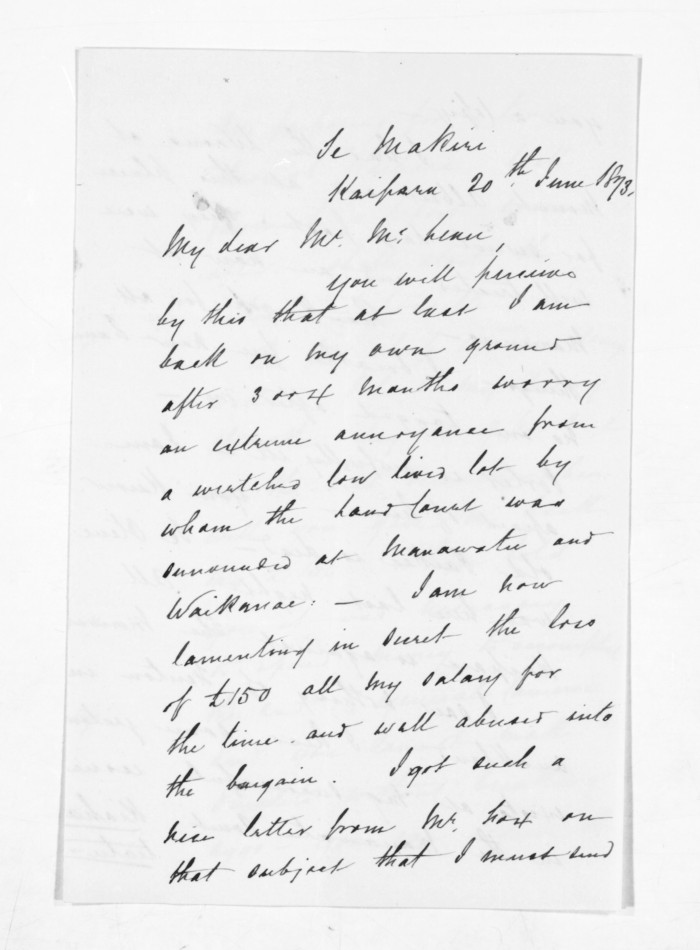 Te Makiri
Kaipara 20th June 1873.
My dear Mr. McLean,
you will perceive
by this that at last I am
back on my own ground
after 3 or 4 months worry
an extreme annoyance from
a wretched low lived lot by
whom the Land Court was
surrounded at Manawatu and
Waikanae: — I am now
lamenting in secret the loss
of £150 all my salary for
the time and well abused into
the bargain. I got such a
nice letter from Mr. Fox on
that subject that I must send